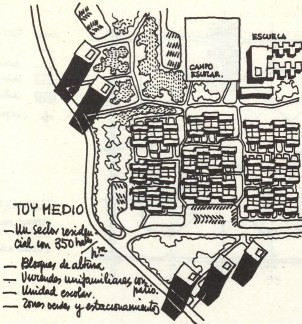 ESCUELA
CAMPO
ESCOLAR.
TUY MEDIO
— Un sector residen-
cial con 350 hab
— Bloques de altura
— Viviendas unifamiliares con patio.
— Unidad escolar.
— Zonas verdes y estacionamiento